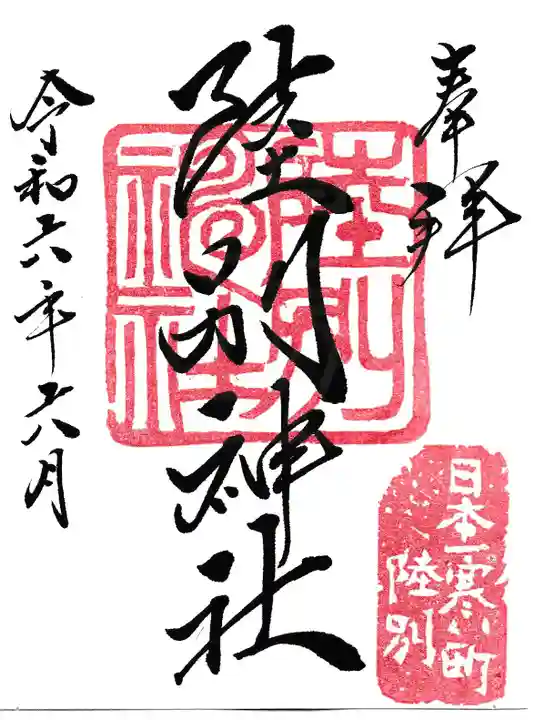 奉拝
陸別神社
陸別神社
日本一寒い町
陸別
令和六年六月